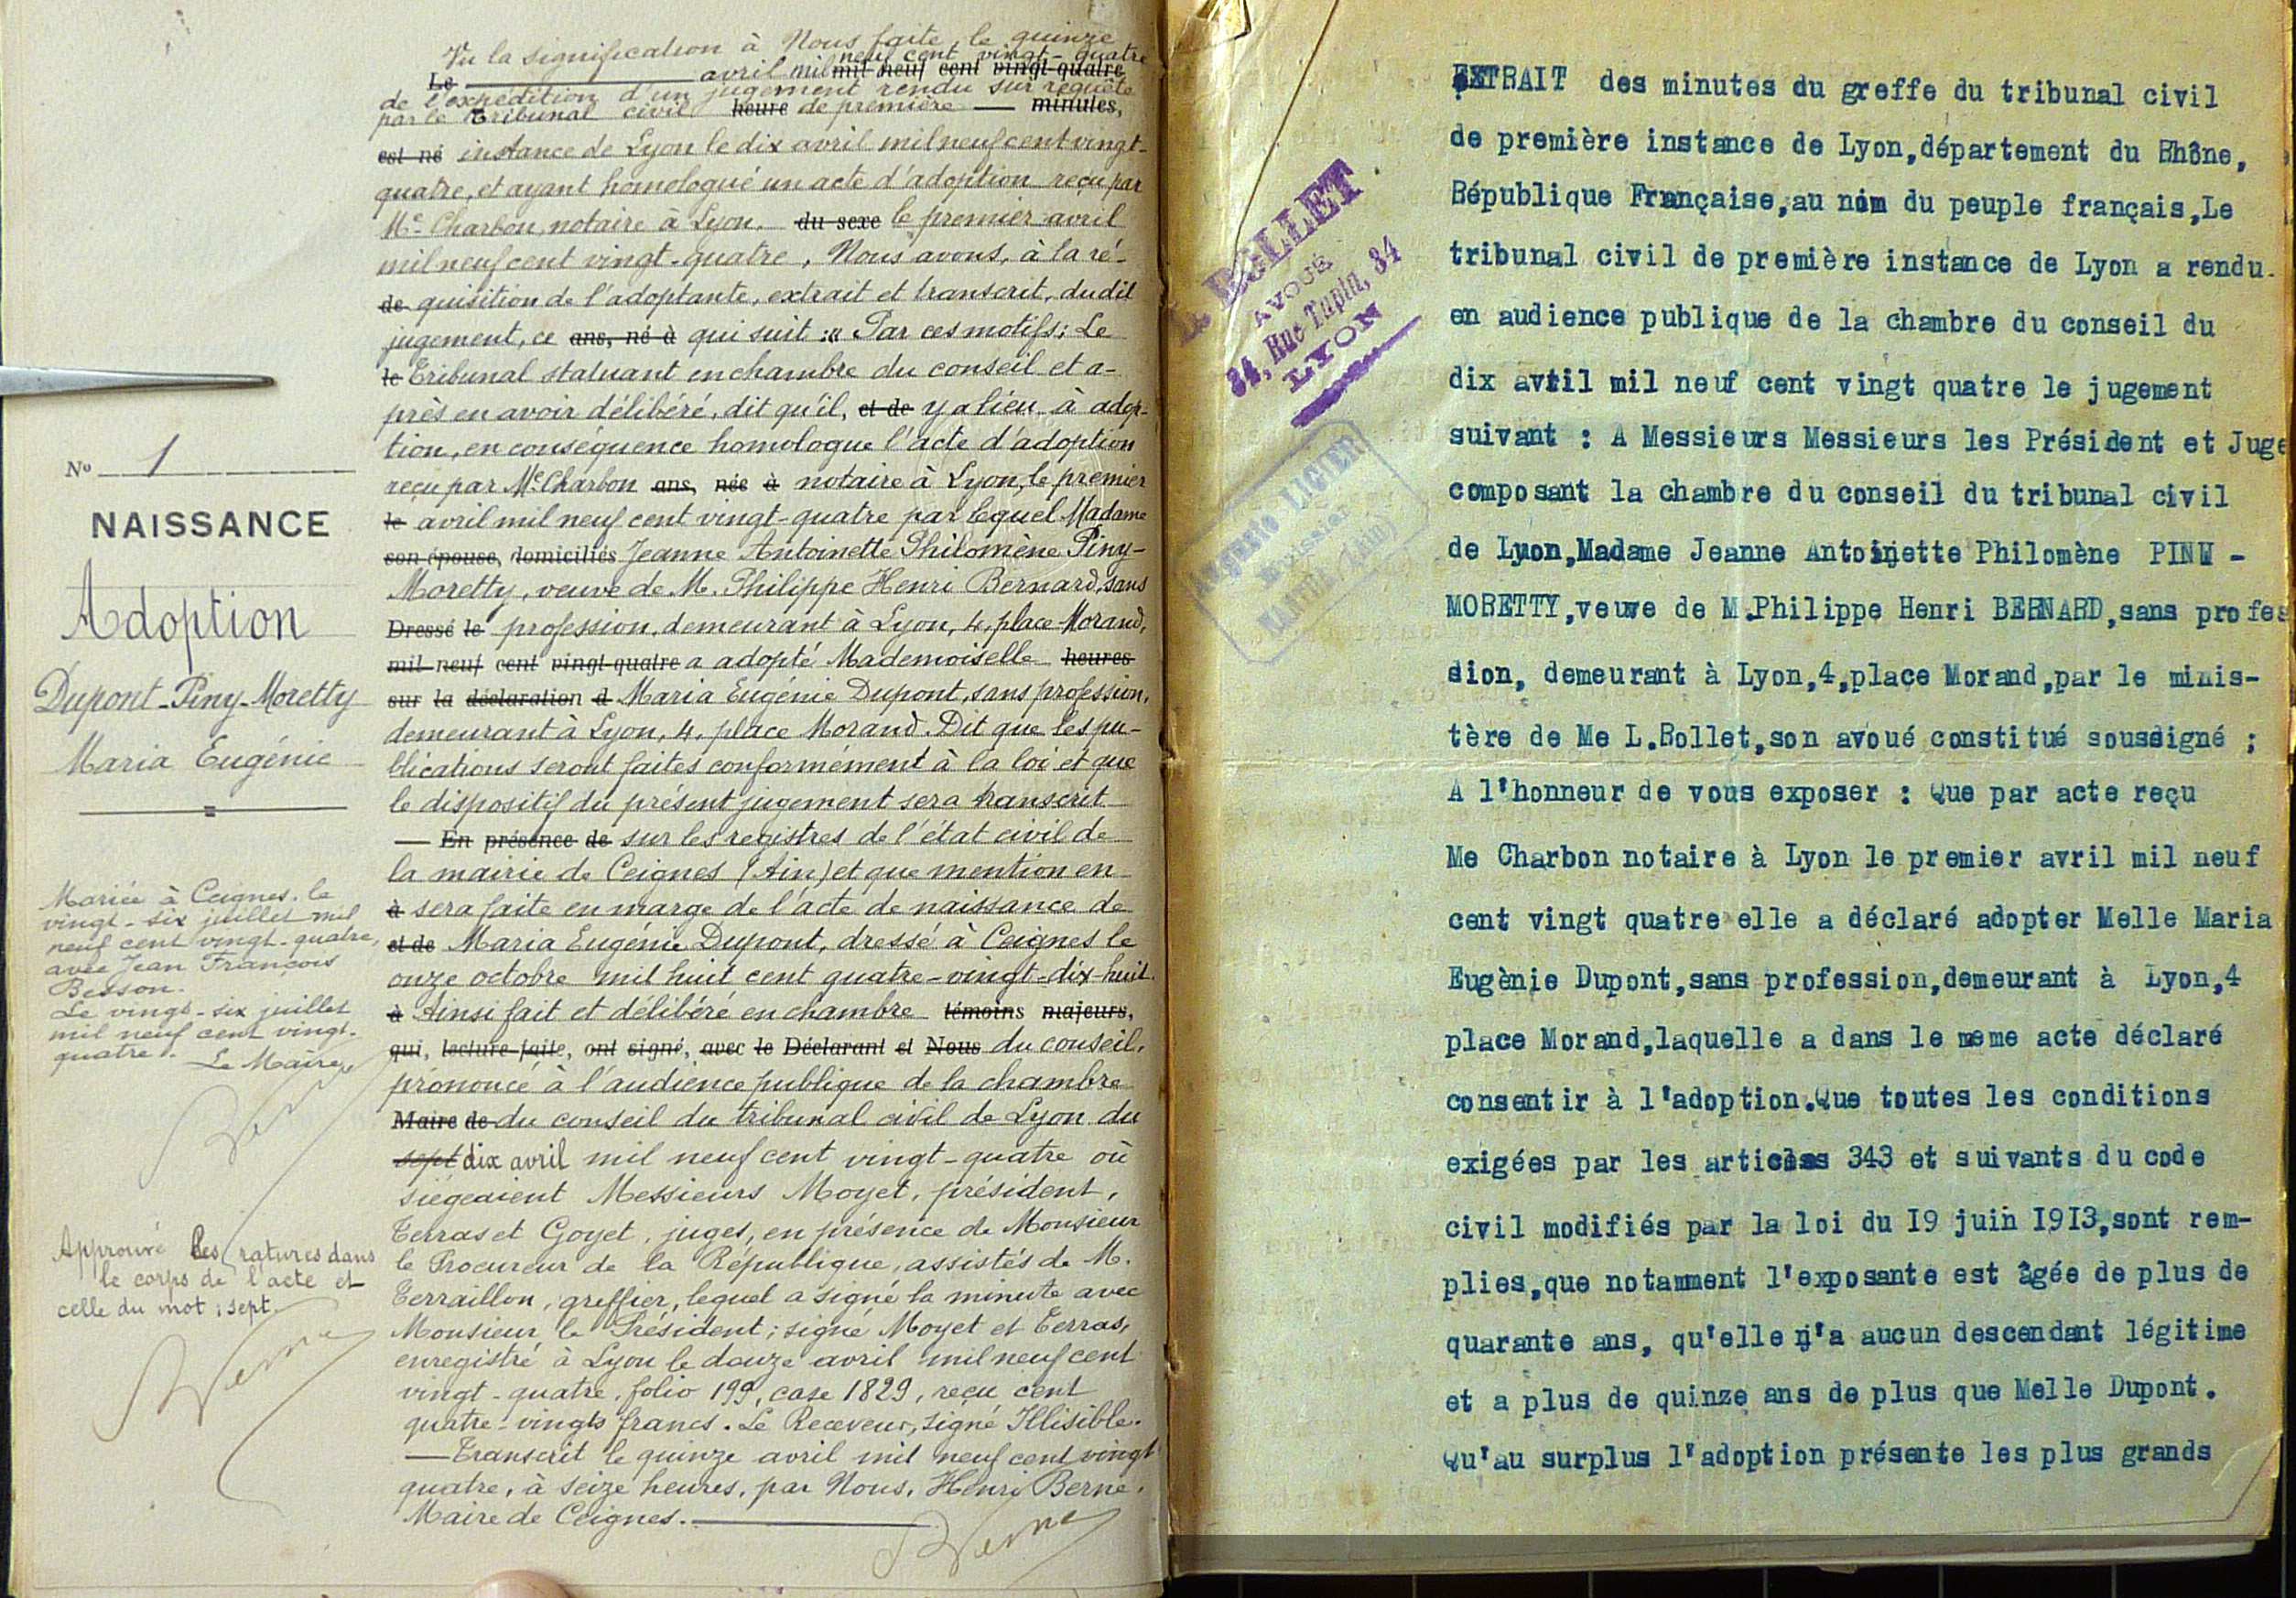 N° 1
NAISSANCE
Adoption
Dupont-Piny-Moretty
Maria Eugénie
Mariée à Ceignes, le
vingt-six juillet mil
neuf cent vingt-quatre,
avec Jean François
Besson.
Le vingt-six juillet
mil neuf cent vingt-
quatre.
Le Maire,
Approuvé les ratures dans
le corps de l'acte et
celle du mot : sept.
Berne
Vu la signification à Nous faite, le quinze
neuf cent vingt-quatre
Le avril mil mil neuf cent vingt-quatre
de l'expédition d'un jugement rendu sur requête
par le Tribunal civil heure de première minutes,
est né instance de Lyon le dix avril mil neuf cent vingt-
quatre, et ayant homologué un acte d'adoption reçu par
Me Charbon, notaire à Lyon, du sexe le premier avril
mil neuf cent vingt-quatre, Nous avons, à la ré-
de quisition de l'adoptante, extrait et transcrit, dudit
jugement, ce ans, né à qui suit : « Par ces motifs ; Le
le Tribunal statuant en chambre du conseil et a-
près en avoir délibéré, dit qu'il, et de y a lieu à adop-
tion, en conséquence homologue l'acte d'adoption
reçu par Me Charbon ans, née à notaire à Lyon, le premier
le avril mil neuf cent vingt-quatre par lequel Madame
son épouse, domiciliés Jeanne Antoinette Philomène Piny-
Moretty, veuve de M. Philippe Henri Bernard, sans
Dressé le profession, demeurant à Lyon, 4, place Morand,
mil neuf cent vingt-quatre a adopté Mademoiselle heures
sur la déclaration d Maria Eugénie Dupont, sans profession,
demeurant à Lyon, 4, place Morand. Dit que les pu-
blications seront faites conformément à la loi et que
le dispositif du présent jugement sera transcrit
— En présence de sur les registres de l'état civil de
la mairie de Ceignes (Ain) et que mention en
à sera faite en marge de l'acte de naissance de
et de Maria Eugénie Dupont, dressé à Ceignes le
onze octobre mil huit cent quatre-vingt-dix-huit.
à Ainsi fait et délibéré en chambre témoins majeurs,
qui, lecture faite, ont signé, avec le Déclarant et Nous du conseil,
prononcé à l'audience publique de la chambre
Maire de du conseil du tribunal civil de Lyon du
sept dix avril mil neuf cent vingt-quatre où
siégeaient Messieurs Moyet, président,
Terras et Goyet, juges, en présence de Monsieur
le Procureur de la République, assistés de M.
Terraillon, greffier, lequel a signé la minute avec
Monsieur le Président ; signé Moyet et Terras,
enregistré à Lyon le douze avril mil neuf cent
vingt-quatre, folio 199, case 1829, reçu cent
quatre-vingts francs. Le Receveur, signé Illisible.
— Transcrit le quinze avril mil neuf cent vingt
quatre, à seize heures, par Nous, Henri Berne,
Maire de Ceignes.
Berne
L. BOLLET
AVOUÉ
34, Rue Tupin, 34
LYON
Auguste LIGIER
Huissier
NANTUA (Ain)
EXTRAIT des minutes du greffe du tribunal civil
de première instance de Lyon,département du Rhône,
République Française,au nom du peuple français,Le
tribunal civil de première instance de Lyon a rendu
en audience publique de la chambre du conseil du
dix avtil mil neuf cent vingt quatre le jugement
suivant : A Messieurs Messieurs les Président et Juge
composant la chambre du conseil du tribunal civil
de Lyon,Madame Jeanne Antoinette Philomène PINY -
MORETTY,veuve de M.Philippe Henri BERNARD,sans profes
sion, demeurant à Lyon,4,place Morand,par le minis-
tère de Me L.Bollet,son avoué constitué soussigné ;
A l'honneur de vous exposer : Que par acte reçu
Me Charbon notaire à Lyon le premier avril mil neuf
cent vingt quatre elle a déclaré adopter Melle Maria
Eugènie Dupont,sans profession,demeurant à Lyon,4
place Morand,laquelle a dans le meme acte déclaré
consentir à l'adoption.Que toutes les conditions
exigées par les articles 343 et suivants du code
civil modifiés par la loi du I9 juin I9I3,sont rem-
plies,que notamment l'exposante est âgée de plus de
quarante ans, qu'elle n'a aucun descendant légitime
et a plus de quinze ans de plus que Melle Dupont.
Qu'au surplus l'adoption présente les plus grands